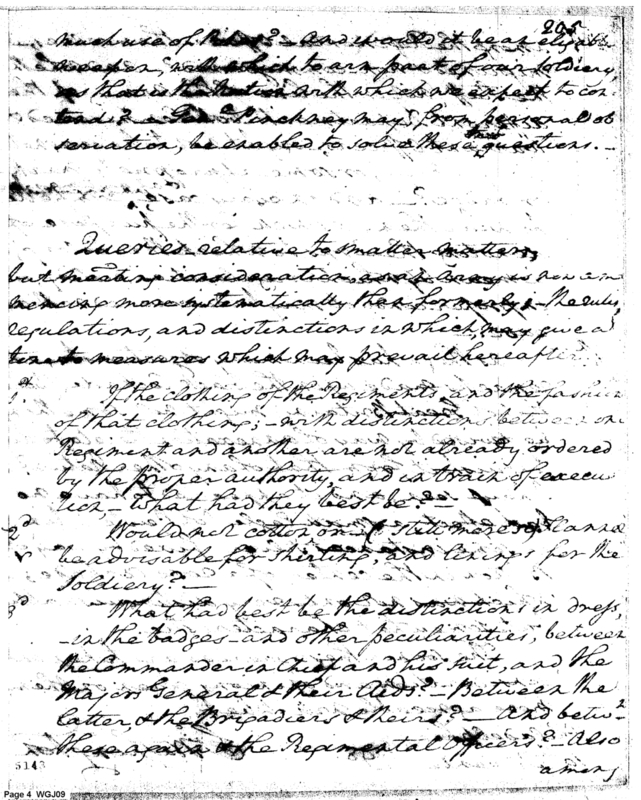 205
much use of Pikes? - and would it be an eligible
weapon, with which to arm part of our Soldiery,
as that is the Nation with which we expect to con
tend? - Genl. Pinckney may, from personal ob
servation, be enabled to solve these questions. -
Queries relative to smaller matters,
but meriting consideration, as an Army is now com
mencing more systematically than formerly, - the rules,
regulations, and distinctions in which, may give a
tone to measures which may prevail hereafter.
1st
If the clothing of the Regiments and the fashion
of that clothing; - with distinctions between one
Regiment and another are not already ordered
by the proper authority, and in train of execu
tion, - What had they best be? -
2d
Would not cotton or still more so flannel
be advisable for shirting, and linings for the
Soldiery? -
3d
What had best be the distinctions in dress,
- in the badges - and other peculiarities, between
the Commander in Chief and his suit, and the
Majors General & their Aids? - Between the
latter, & the Brigadiers & theirs? - And betwn.
these again & the Regimental Officers? - Also
among
5143
Page 4 WGJ09